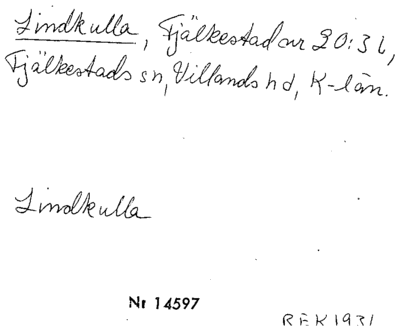 Lindkulla, Fjälkestad nr 20:3 l,
Fjälkestads sn, Villands hd, K-län.
Lindkulla
Nr 14597
REK 1931